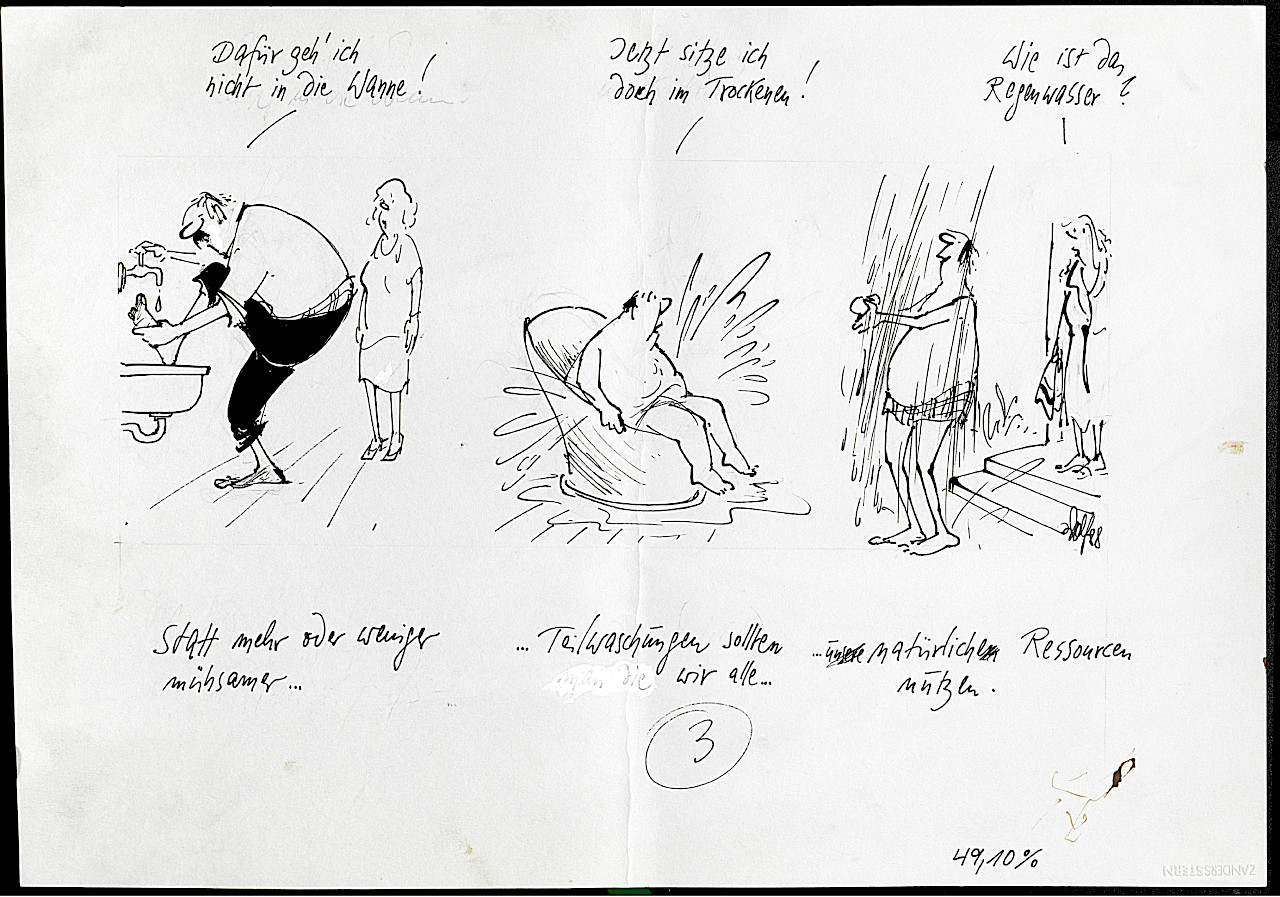 Dafür geh' ich
nicht in die Wanne!
Jetzt sitze ich
doch im Trockenen!
Wie ist das
Regenwasser?
Statt mehr oder weniger
mühsamer...
... Teilwaschungen sollten
wir alle...
... natürliche Ressourcen
nützen.
3
49,10%
ZANDERSSTERN